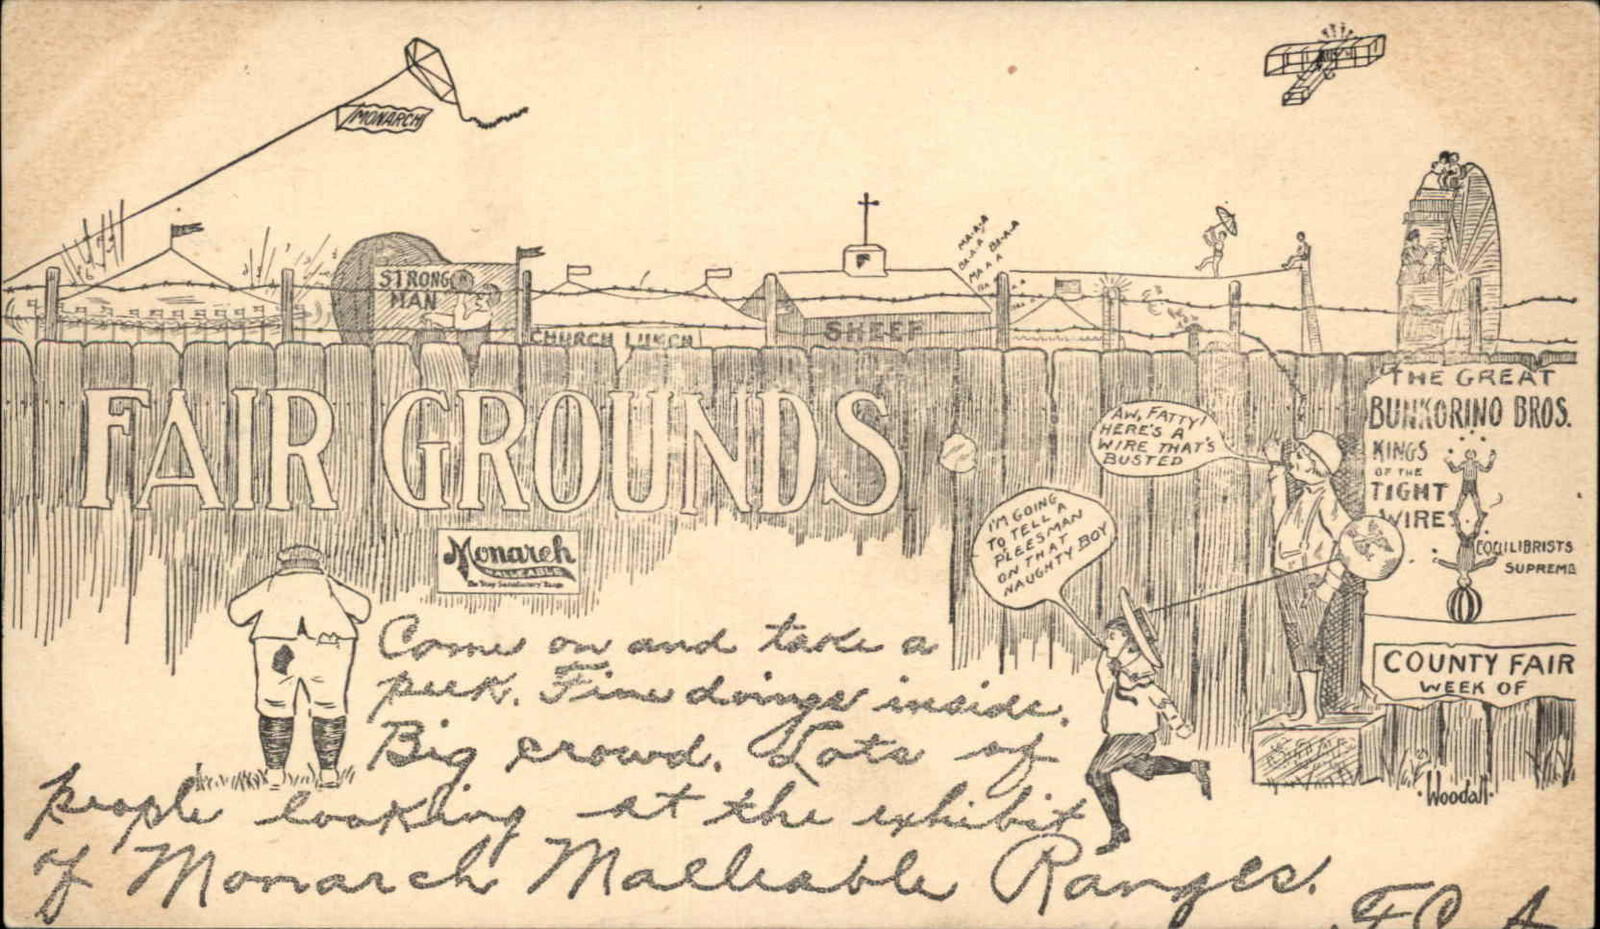 MONARCH
STRONG
MAN
MA-A-A
BA-A-A
BA-A-A
MA-A-A
F
CHURCH LUNCH
SHEEP
FAIR GROUNDS
THE GREAT
BUNKORINO BROS.
KINGS
OF THE
TIGHT
WIRE
EQUILIBRISTS
SUPREME
AW, FATTY!
HERE'S A
WIRE THAT'S
BUSTED
I'M GOING
TO TELL A
PLEESMAN
ON THAT
NAUGHTY BOY
Monarch
MALLEABLE
COUNTY FAIR
WEEK OF
SOAP
Woodall
Come on and take a
peek. Fine doings inside.
Big crowd. Lots of
people looking at the exhibit
of Monarch Malleable Ranges.